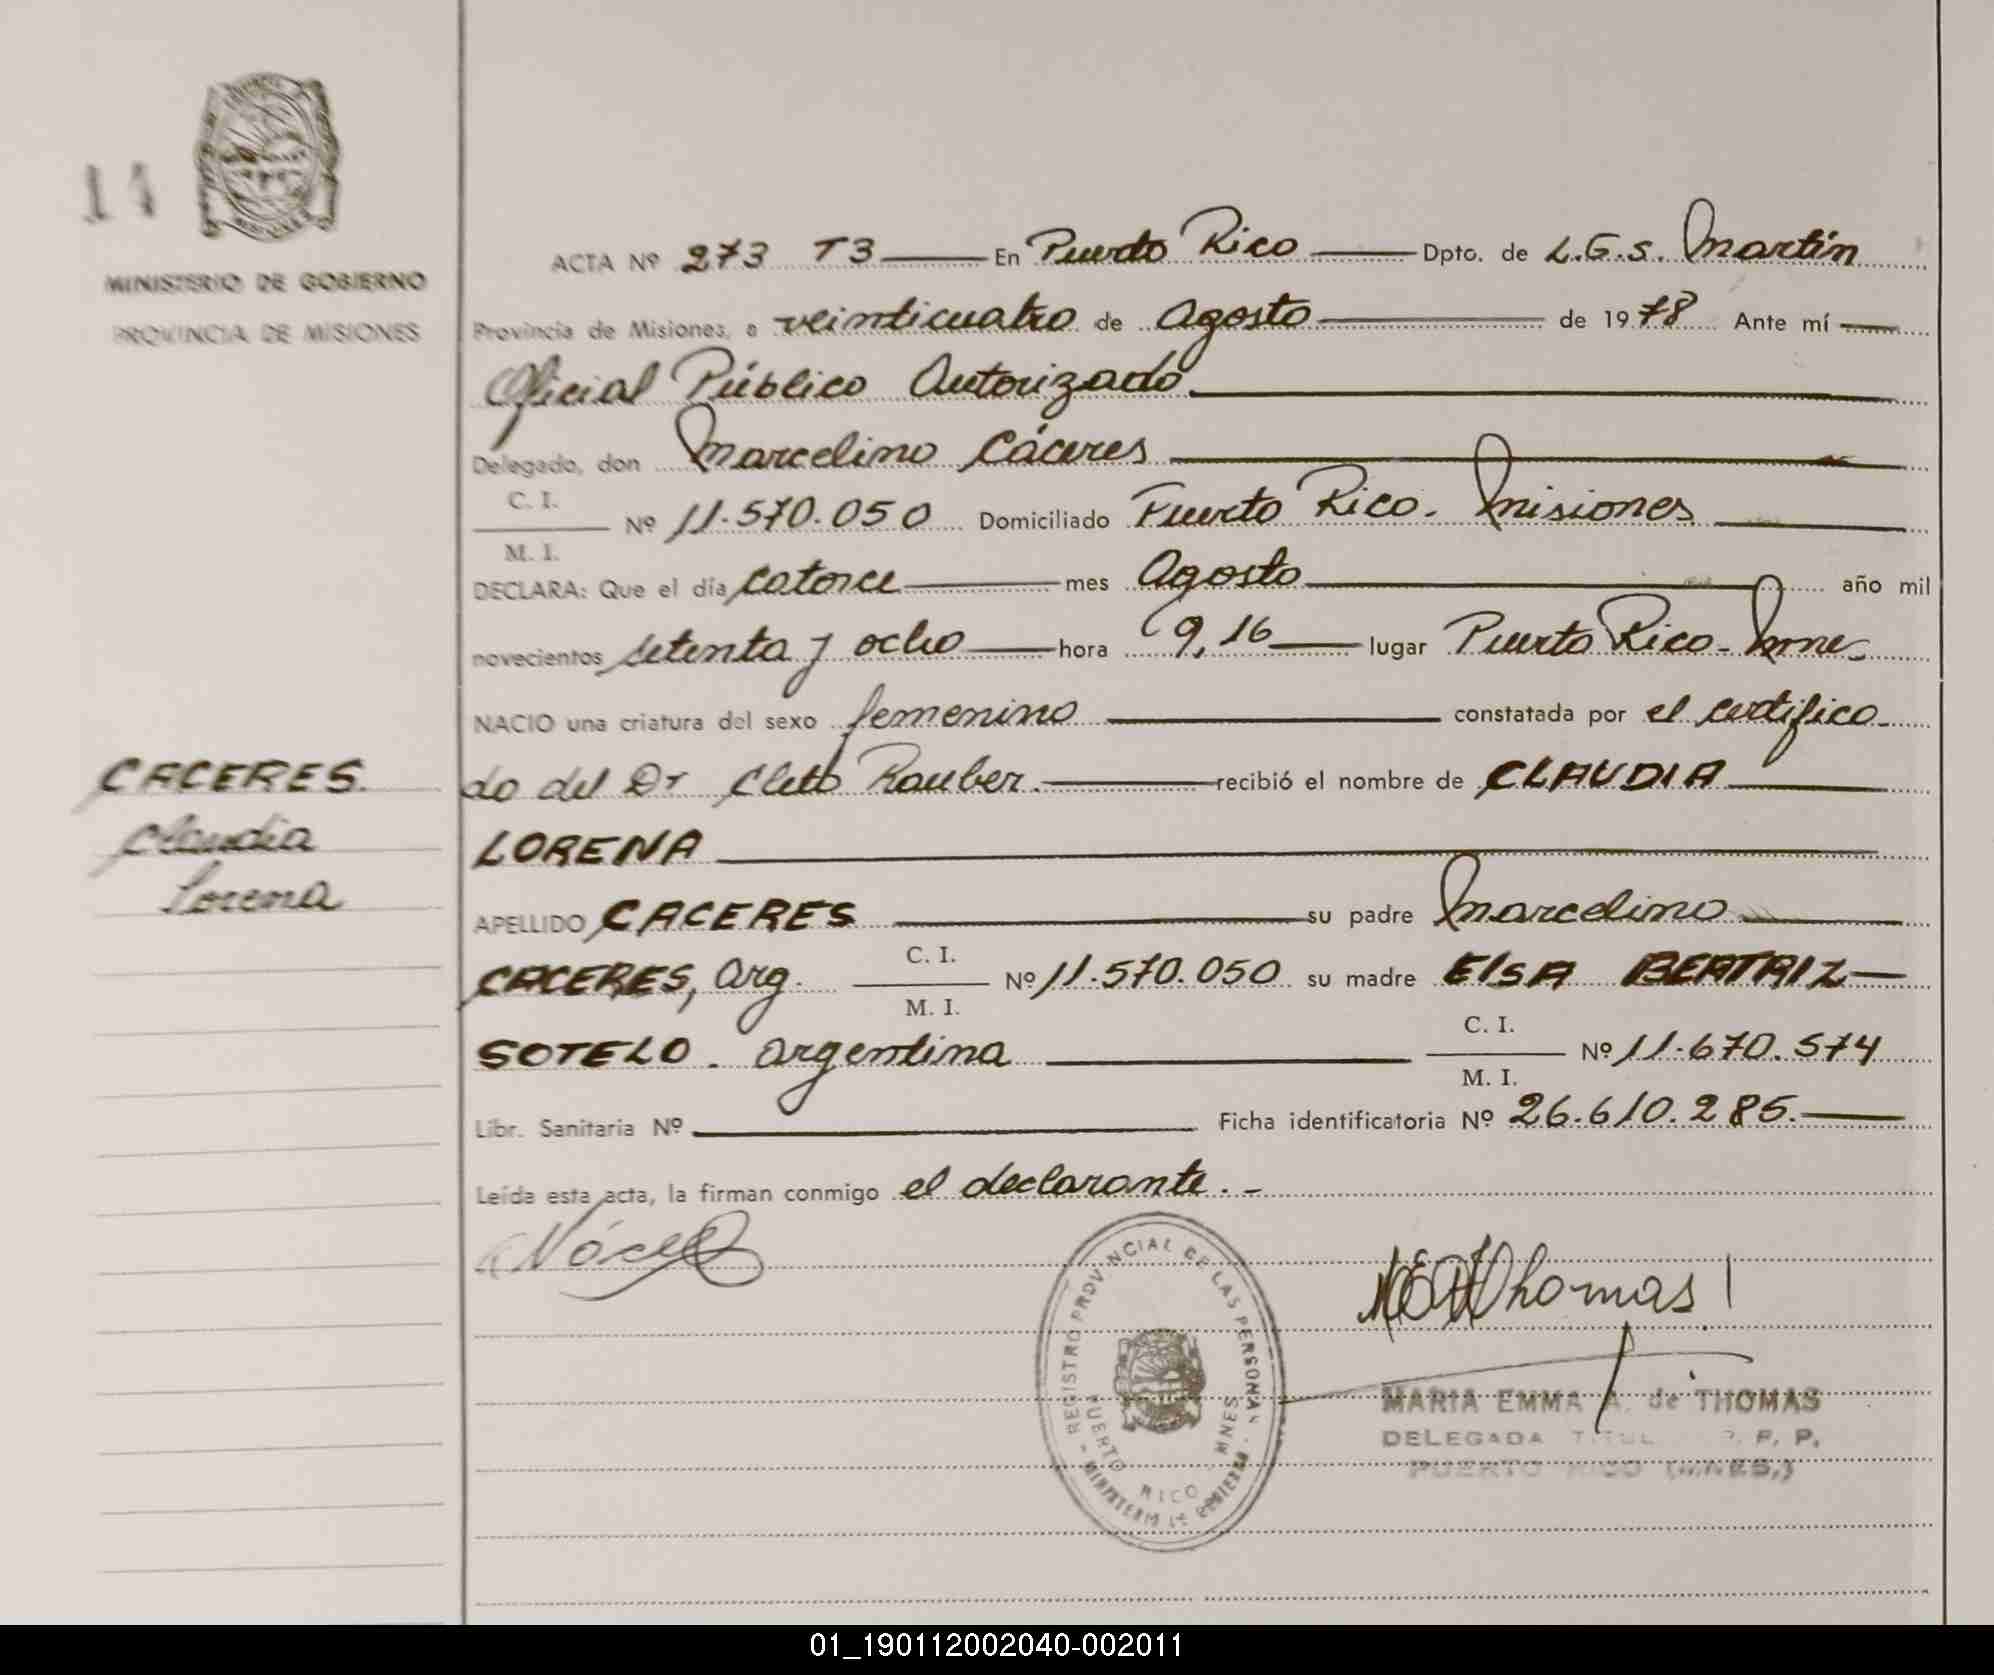 14
MINISTERIO DE GOBIERNO
PROVINCIA DE MISIONES
ACTA Nº 273 T3 En Puerto Rico Dpto. de L.G.S. Martín
Provincia de Misiones, a veinticuatro de Agosto de 1978 Ante mí
Oficial Público Autorizado
Delegado, don Marcelino Cáceres
C. I.
Nº 11.570.050 Domiciliado Puerto Rico. Misiones
M. I.
DECLARA: Que el día catorce mes Agosto año mil
novecientos setenta y ocho hora 9,16 lugar Puerto Rico - Mnes
NACIO una criatura del sexo femenino constatada por el certifica
do del Dr Cleto Rauber. recibió el nombre de CLAUDIA
LORENA
CACERES.
Claudia
Lorena
APELLIDO CACERES su padre Marcelino
C. I.
CACERES, Arg. Nº 11.570.050 su madre ElSA BEATRIZ
M. I.
C. I.
SOTELO. argentina Nº 11.670.574
M. I.
Libr. Sanitaria Nº Ficha identificatoria Nº 26.610.285.
Leída esta acta, la firman conmigo el declarante. -
REGISTRO PROVINCIAL DE LAS PERSONAS
PUERTO RICO - MNES
MINISTERIO DE GOBIERNO
Thomas
MARIA EMMA A. de THOMAS
DELEGADA P. P.
PUERTO RICO (MNES.)
01_190112002040-002011